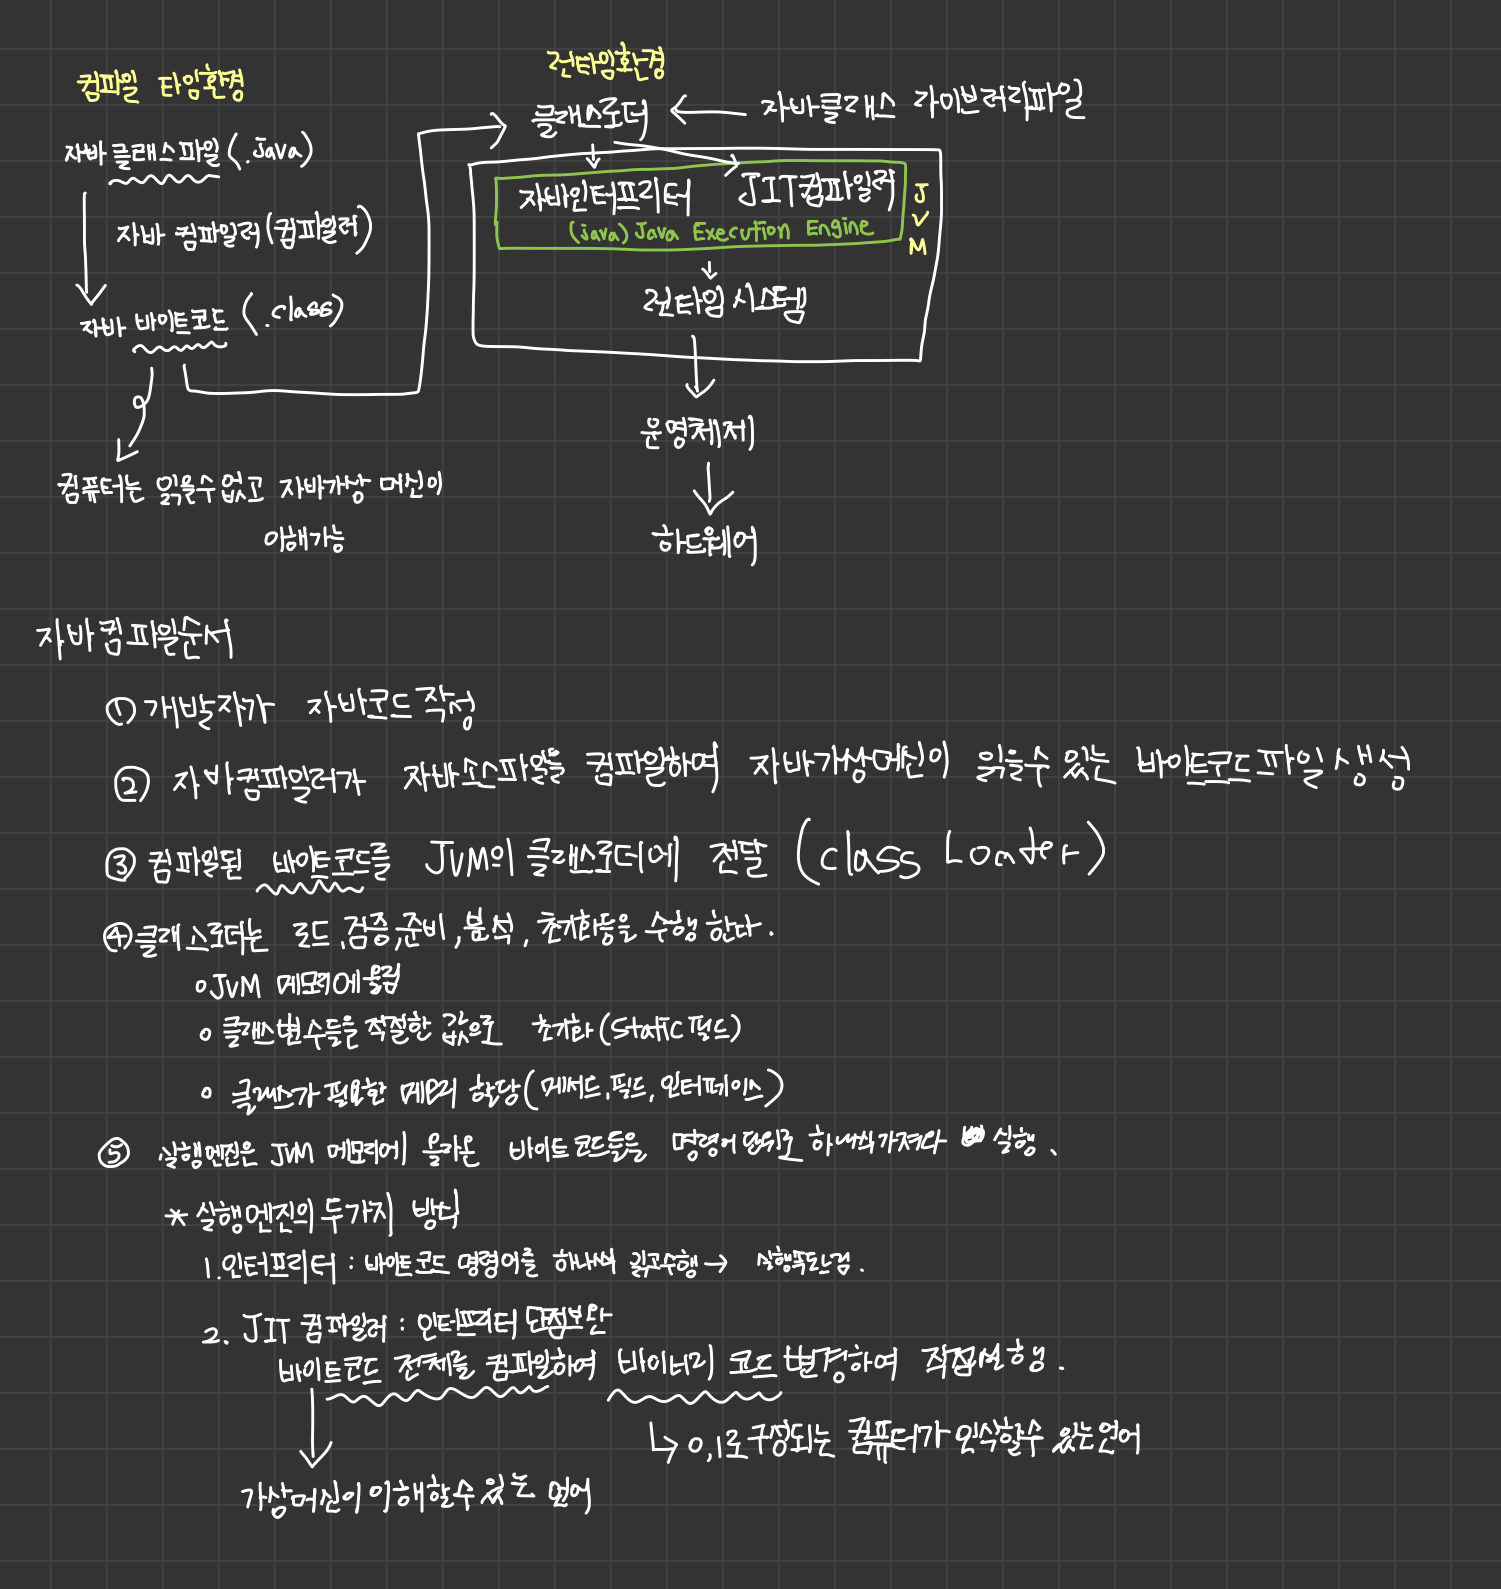 컴파일 타임환경
자바 클래스파일(.java)
자바 컴파일러(컴파일러)
자바 바이트코드 (.class)
컴퓨터는 읽을수 없고 자바가상 머신이
이해가능
런타임환경
클래스로더 ← 자바클래스 라이브러리파일
자바인터프리터 JIT컴파일러
(java) Java Execution Engine
JVM
런타임 시스템
운영체제
하드웨어
자바컴파일순서
① 개발자가 자바코드작성
② 자바컴파일러가 자바소스파일을 컴파일하여 자바가상머신이 읽을수 있는 바이트코드파일 생성
③ 컴파일된 바이트코드를 JVM의 클래스로더에 전달 (class Loader)
④ 클래스로더는 로드,검증,준비,분석, 초기화등을 수행한다.
o JVM 메모리에 올림
o 클래스변수들을 적절한 값으로 초기화(static 필드)
o 클래스가 필요한 메모리 할당(메서드,필드,인터페이스)
⑤ 실행엔진은 JVM 메모리에 올라온 바이트 코드들을 명령어 단위로 하나씩 가져와 실행.
* 실행엔진의 두가지 방식
1. 인터프리터 : 바이트코드 명령어를 하나씩 읽고수행 → 실행속도느림.
2. JIT 컴파일러 : 인터프리터 단점보완
바이트코드 전체를 컴파일하여 바이너리 코드 변경하여 직접실행.
↳ 0,1로 구성되는 컴퓨터가 인식할수 있는언어
가상머신이 이해할수 있는 언어